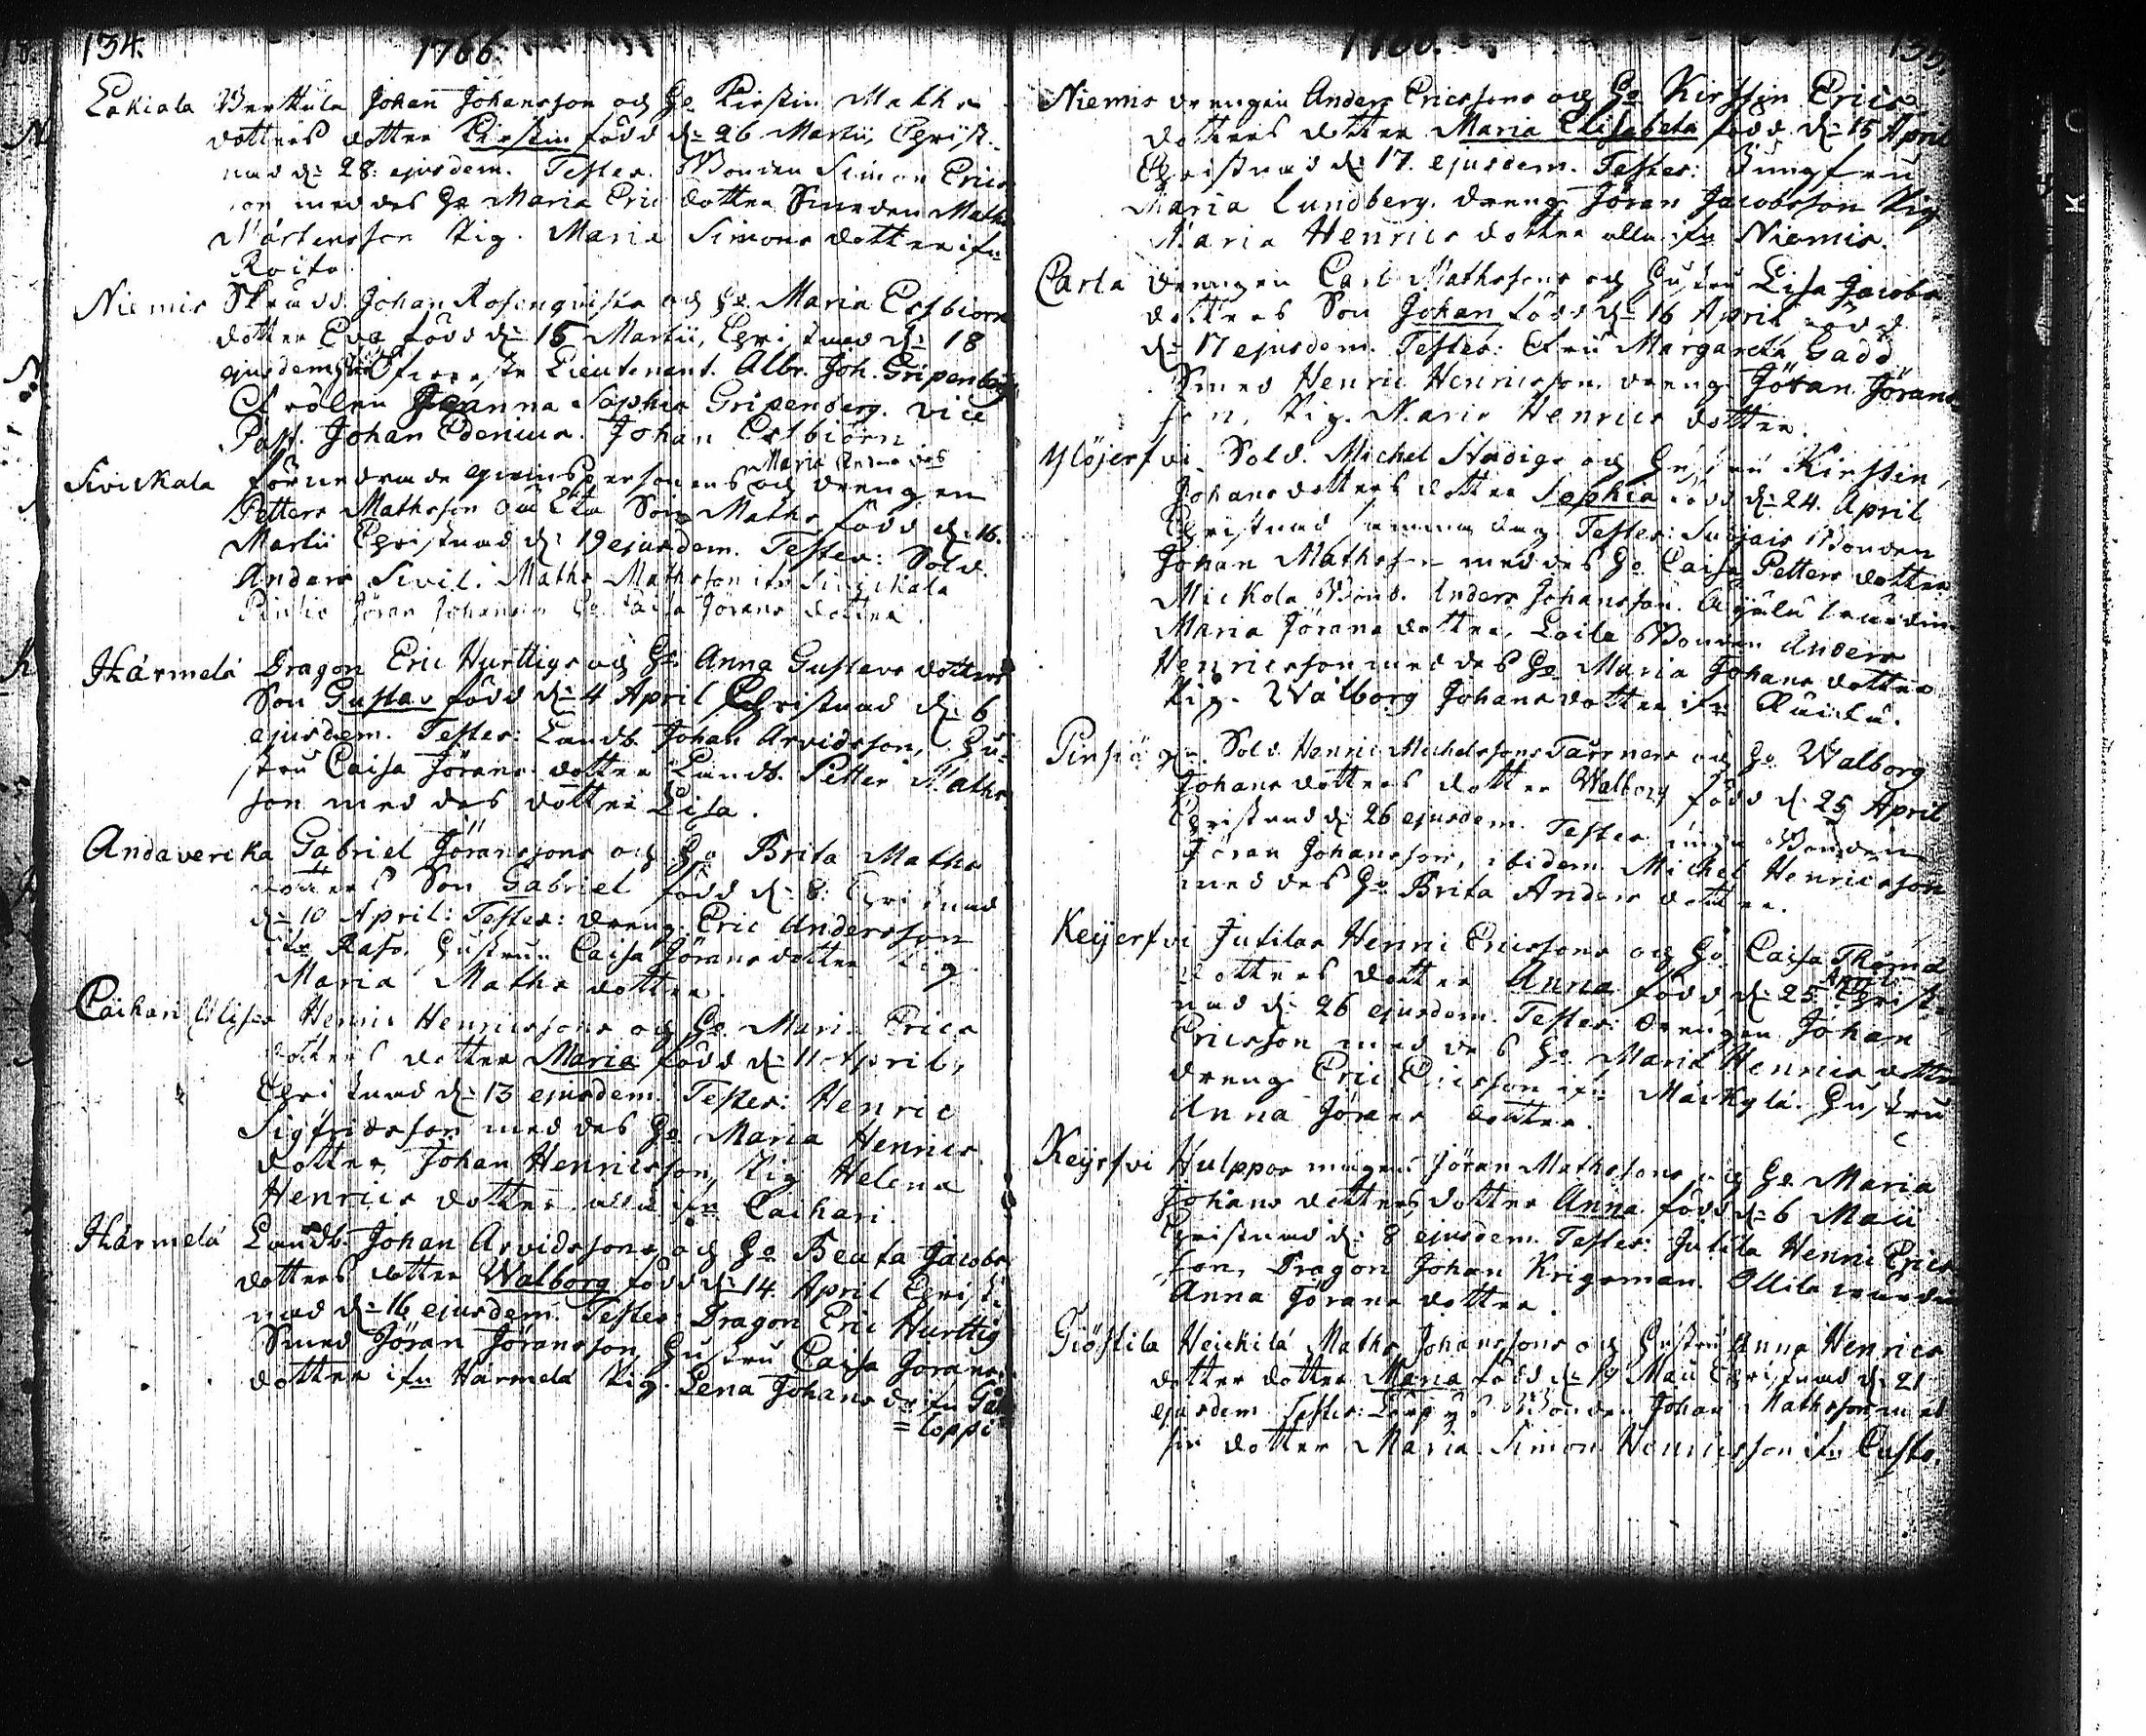 134.
1766.
Lakiala Berttula Johan Johansson och Ho Kirstin Maths
dotters dotter Kirstin född d: 26 Martii, Christ-
nad d: 28: ejusdem. Testes. Bonden Simon Erics
son med des Ho Maria Erics dotter Smeden Maths
Mårtensson Pig. Maria Simons dotter ifn
Roito.
Niemis Skrädd. Johan Rosenquists och Ho Maria Estbiörn
dotter Eva född d: 15 Martii, Christnad d: 18
ejusdem Lieutenant. Albr. Joh. Gripenberg
Fröken Joanna Sophia Gripenberg. vice
Past. Johan Edenius. Johan Estbiörn
Maria Anders dos
Sivickala förnedrade qvinspersonens och drengen
Petters Mathsson Son Maths född d: 16.
Martii Christnad d: 19 ejusdem. Testes: Sold.
Anders Sivil. Maths Mathsson ifn Sivickala
Pintis Jöran Johansson Ho Caisa Jörans dotter.
Härmelä Dragon Eric Hurttigs och Ho Anna Gustavs dotters
Son Gustav född d: 4 April Christnad d: 6
ejusdem. Testes: Landb. Johan Arvidsson, Hu-
stru Caisa Jörans dotter Landb. Petter Maths
son med des dotter Lisa.
Andavercka Gabriel Jöranssons och Ho Brita Maths
dotters Son Gabriel född d: 8: Christnad
d: 10 April: Testes: dreng. Eric Andersson
ifn Raso. Hustrun Caisa Jörans dotter Pig.
Maria Maths dotter.
Caihari Ulisas Henric Henricssons och Ho Maria Erics
dotters dotter Maria född d: 11 April,
Christnad d: 13 ejusdem. Testes: Henric
Sigfridsson med des Ho Maria Henrics
dotter, Johan Henricsson, Pig Helena
Henrics dotter alla ifn Caihari.
Härmelä Landb. Johan Arvidssons och Ho Beata Jacobs
dotters dotter Walborg född d: 14 April Christ-
nad d: 16 ejusdem. Testes: Dragon Eric Hurttig
Smed Jöran Jöransson, Hustru Caisa Jörans
dotter ifn Härmelä Pig. Lena Johans dr ifn Ga
= loppi
1766.
135.
Niemis drengen Anders Ericssons och Ho Kirstin Erics
dotters dotter Maria Elisabeta född d: 15 April
Christnad d: 17. ejusdem. Testes: Jungfru
Maria Lundberg. dreng. Jöran Jacobsson Pig
Maria Henrics dotter alla ifn Niemis.
Carla drengen Carl Mathssons och Hustru Lisa Jacobs
dotters Son Johan född d: 16 April
d: 17 ejusdem. Testes: Fru Margareta Gadd
Smed Henric Henricsson. dreng Jöran Jörans
son, Pig. Maria Henrics dotter.
Ylöjerfvi Sold. Michel Stadigs och Hustru Kirstin
Johans dotters dotter Sophia född d: 24. April
Christnad samma dag. Testes: Bonden
Johan Mathsson med des Ho Caisa Petters dotter
Mickola Bond. Anders Johansson.
Maria Jörans dotter, Laila Bonden Anders
Henricsson med des Ho Maria Johans dotter
Pig. Walborg Johans dotter ifn
Pinsiö Sold. Henric Michelssons och Ho Walborg
Johans dotters dotter Walborg född d: 25 April
Christnad d: 26 ejusdem. Testes Bonden
Jöran Johansson, ibidem Michel Henricsson
med des Ho Brita Anders dotter.
Keijerfvi Jutilas Henric Ericssons och Ho Caisa Thoma
dotters dotter Anna född d: 25 April Christ-
nad d: 26 ejusdem. Testes: drengen Johan
Ericsson med des Ho Maria Henrics dotter
dreng Eric Ericsson ifn Mäckylä. Hustru
Anna Jörans dotter.
Keijrfvi Hulppos mågens Jöran Mathssons och Ho Maria
Johans dotters dotter Anna född d: 6 Maii
Christnad d: 8 ejusdem. Testes: Jutila Henric Erics
son, Dragon Johan Krigsman.
Anna Jörans dotter.
Giöttilä Heickilä Maths Johanssons och Hustru Anna Henrics
dotter dotter Maria född d: 19 Maii Christnad d: 21
ejusdem. Testes: Bonden Johan Mathsson med
sin dotter Maria. Simon Henricsson ifn